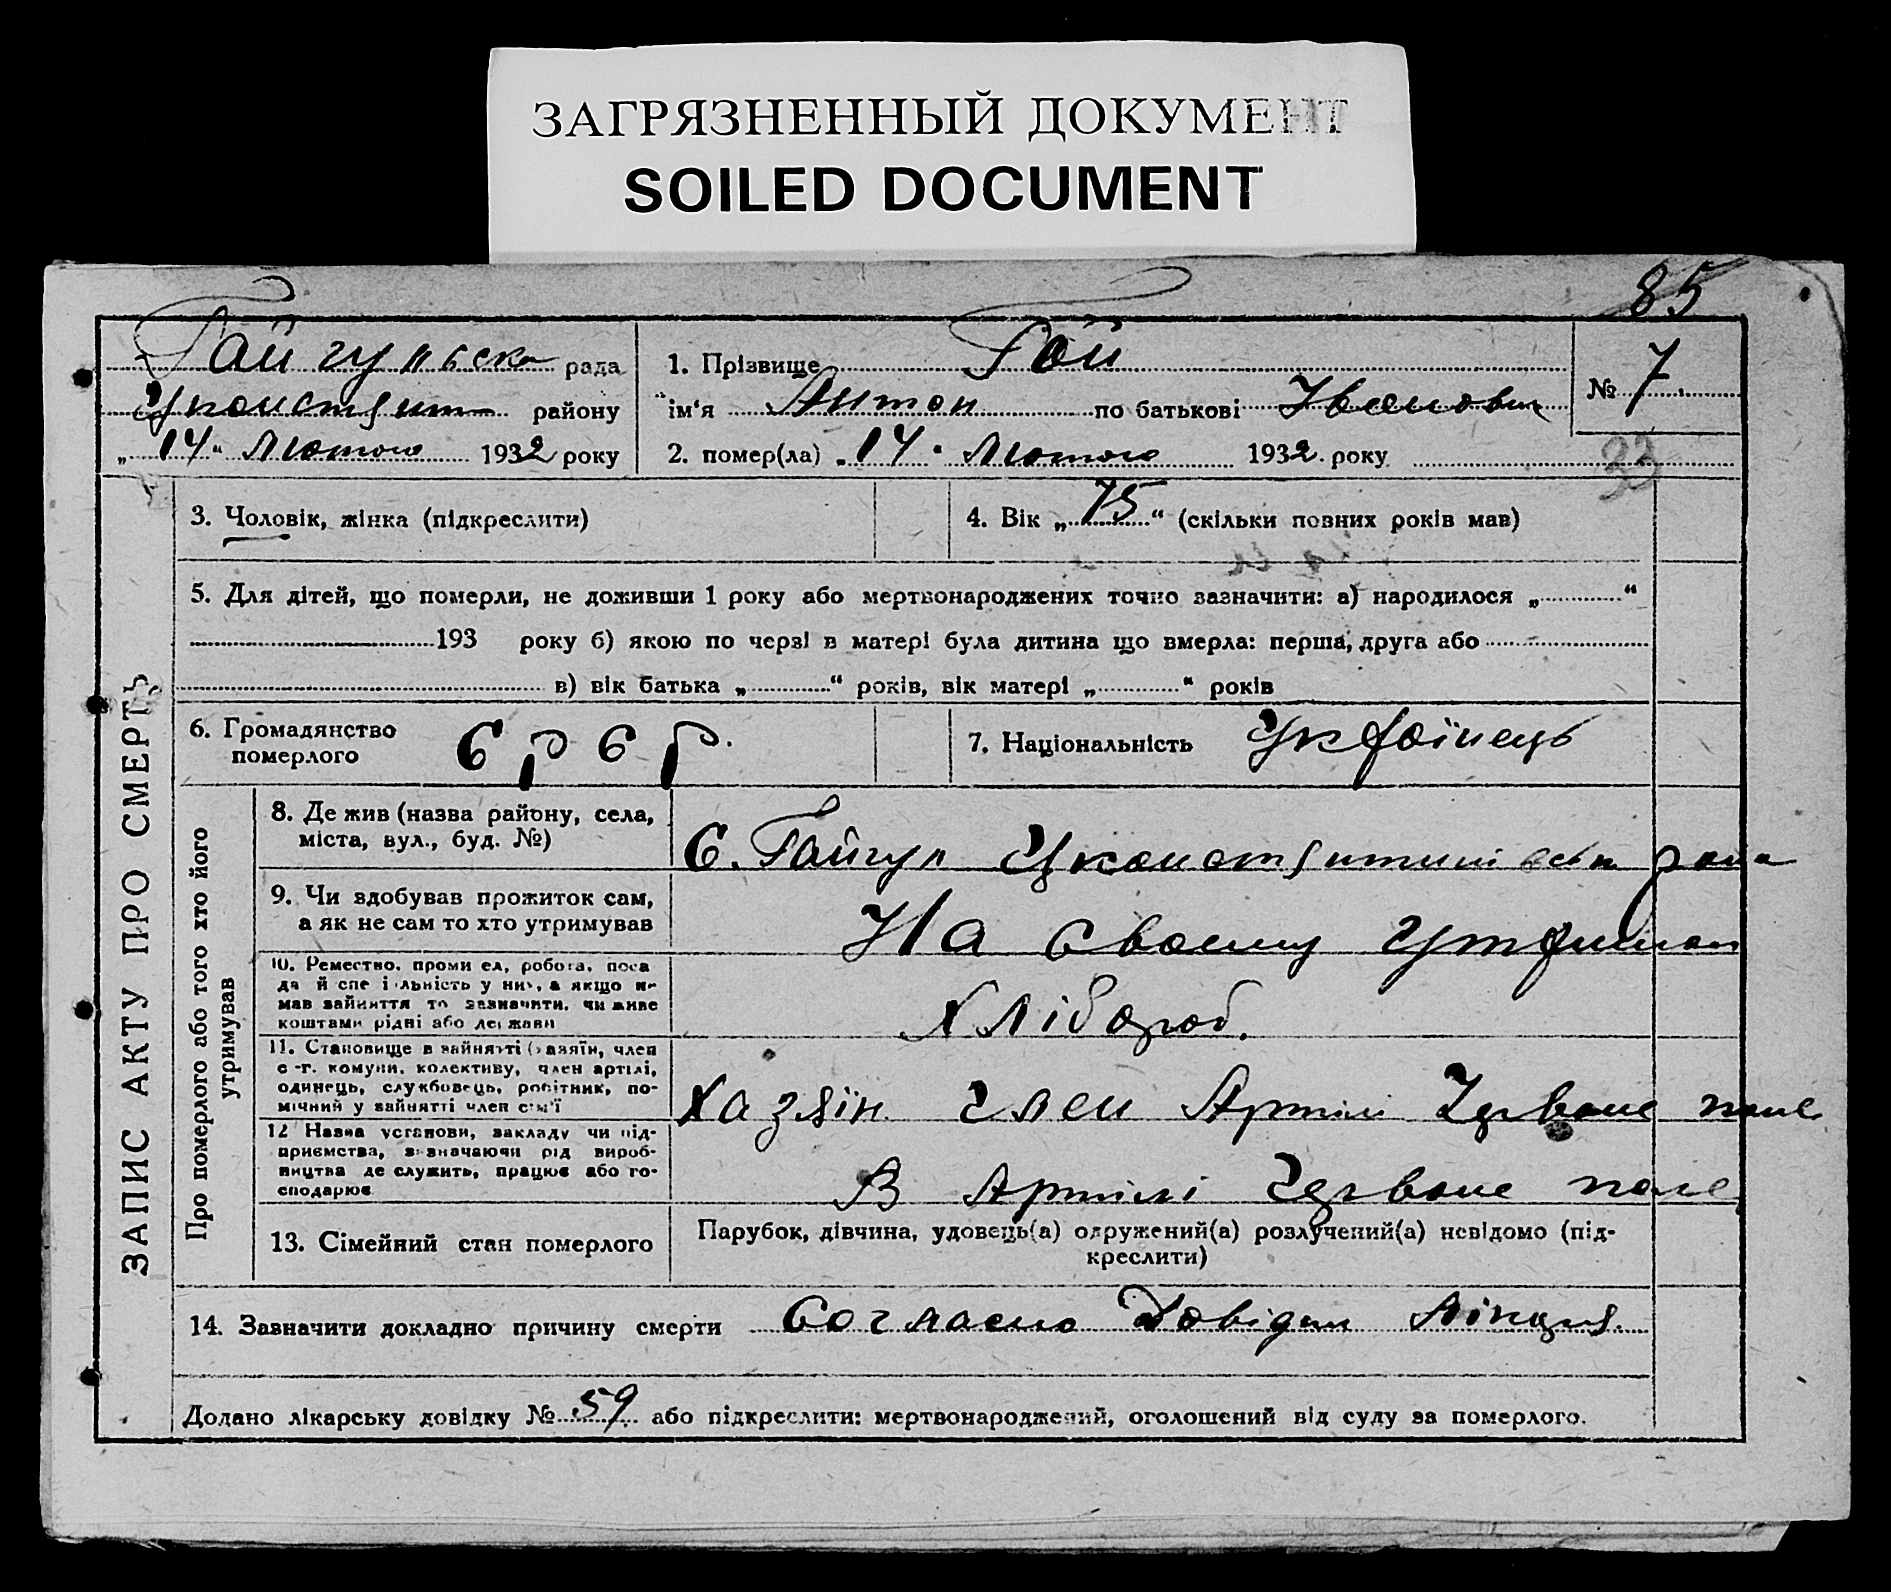 ЗАГРЯЗНЕННЫЙ ДОКУМЕНТ
SOILED DOCUMENT
85
Гайгульська рада
району
„14“ Лютого 1932 року
1. Прізвище Гой
ім'я Антон по батькові Иванович
2. помер(ла) „14“ Лютого 1932 року
№ 7
33
ЗАПИС АКТУ ПРО СМЕРТЬ
3. Чоловік, жінка (підкреслити)
4. Вік „75“ (скільки повних років мав)
5. Для дітей, що померли, не доживши 1 року або мертвонароджених точно зазначити: а) народилося „ “
193 року б) якою по черзі в матері була дитина що вмерла: перша, друга або
в) вік батька „ “ років, вік матері „ “ років
6. Громадянство
померлого
СРСР.
7. Національність Українець
Про померлого або того хто його
утримував
8. Де жив (назва району, села,
міста, вул., буд. №)
С. Гайгул
9. Чи здобував прожиток сам,
а як не сам то хто утримував
На своему
10. Ремество, промисел, робота, поса
да й спеціяльність у них, а якщо не
мав зайняття то зазначити, чи живе
коштами рідні або держави
Хлібороб.
11. Становище в зайнятті (хазяїн, член
с.-г. комуни, колективу, член артілі,
одинець, службовець, робітник, по-
мічний у зайнятті член сім'ї
Хазяін член Артілі Червоне поле
12 Назва установи, закладу чи під-
приємства, визначаючи рід вироб-
ництва де служить, працює або го-
сподарює
В Артілі Червоне поле
13. Сімейний стан померлого
Парубок, дівчина, удовець(а) одружений(а) розлучений(а) невідомо (під-
креслити)
14. Зазначити докладно причину смерти Согласно Довідки
Додано лікарську довідку № 59 або підкреслити: мертвонароджений, оголошений від суду за померлого.